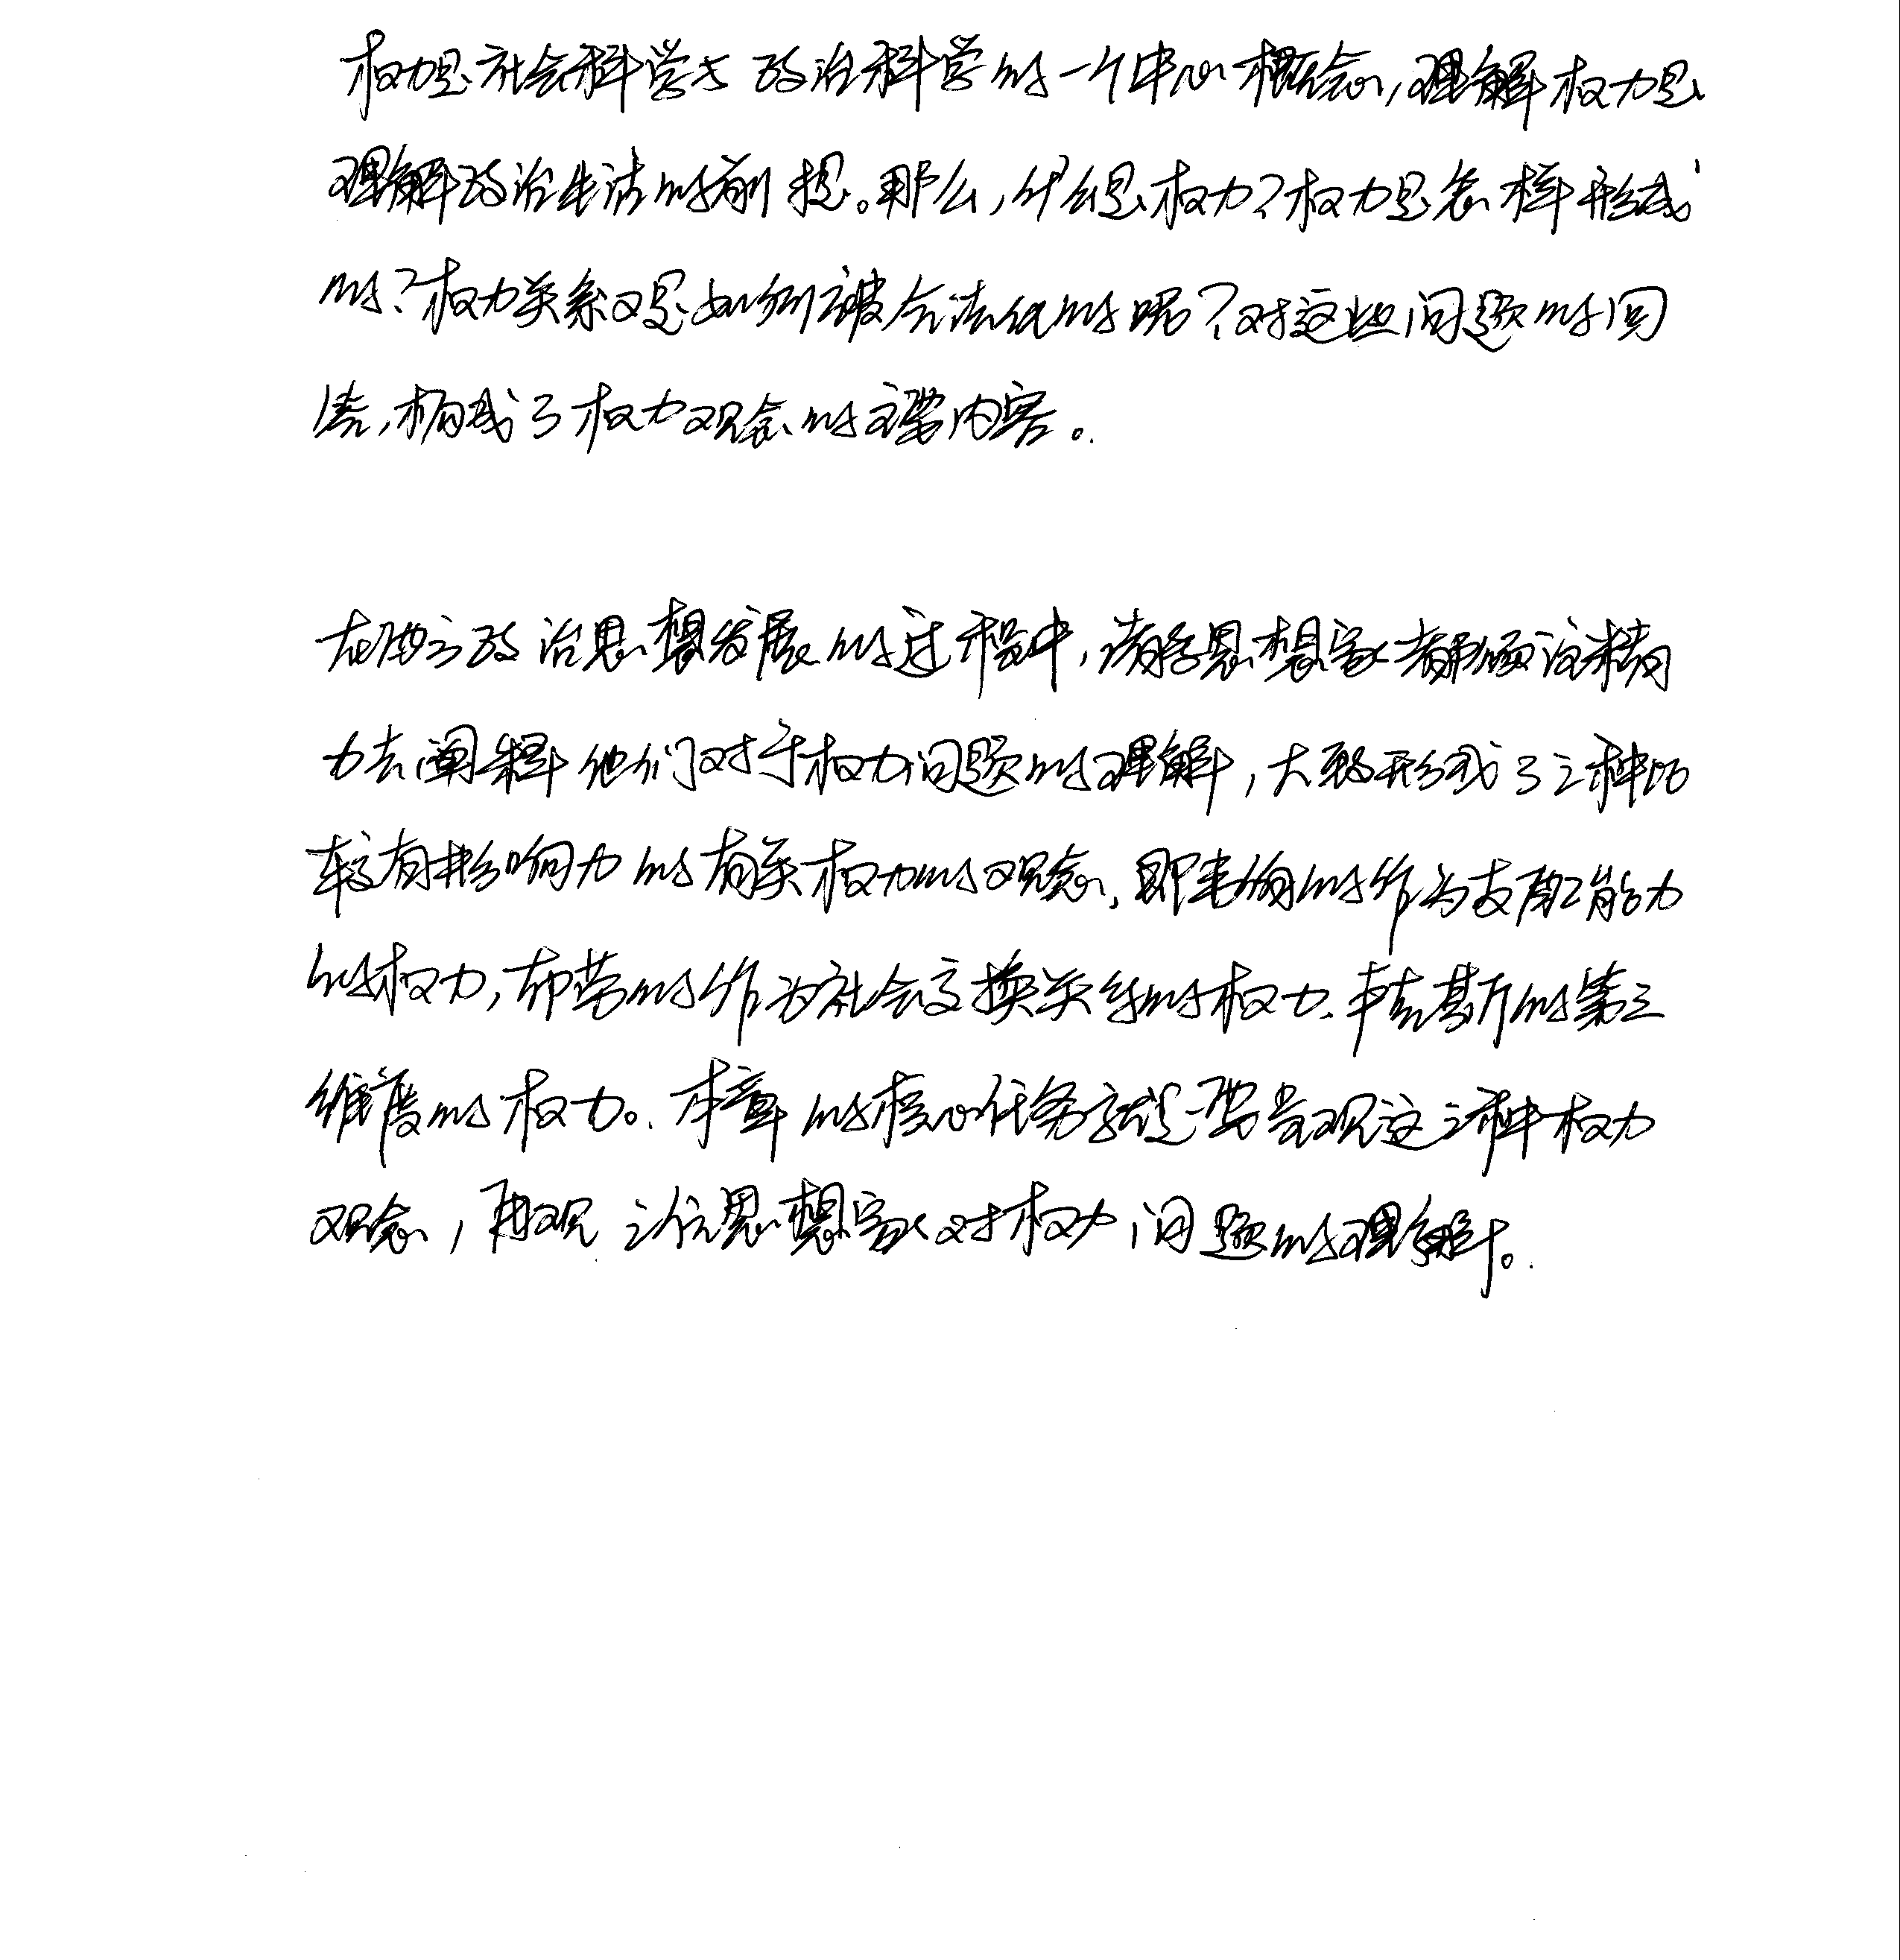 权力是社会科学与政治科学的一个中心概念，理解权力是
理解政治生活的前提。那么，什么是权力？权力是怎样形成
的？权力关系又是如何被合法化的呢？对这些问题的回
答，构成了权力观念的主要内容。
在西方政治思想发展的过程中，诸多思想家都倾注精
力去阐释他们对于权力问题的理解，大致形成了三种比
较有影响力的有关权力的观念，即韦伯的作为支配能力
的权力，布劳的作为社会交换关系的权力、卢克斯的第三
维度的权力。本章的核心任务就是要呈现这三种权力
观念，再现三位思想家对权力问题的理解。